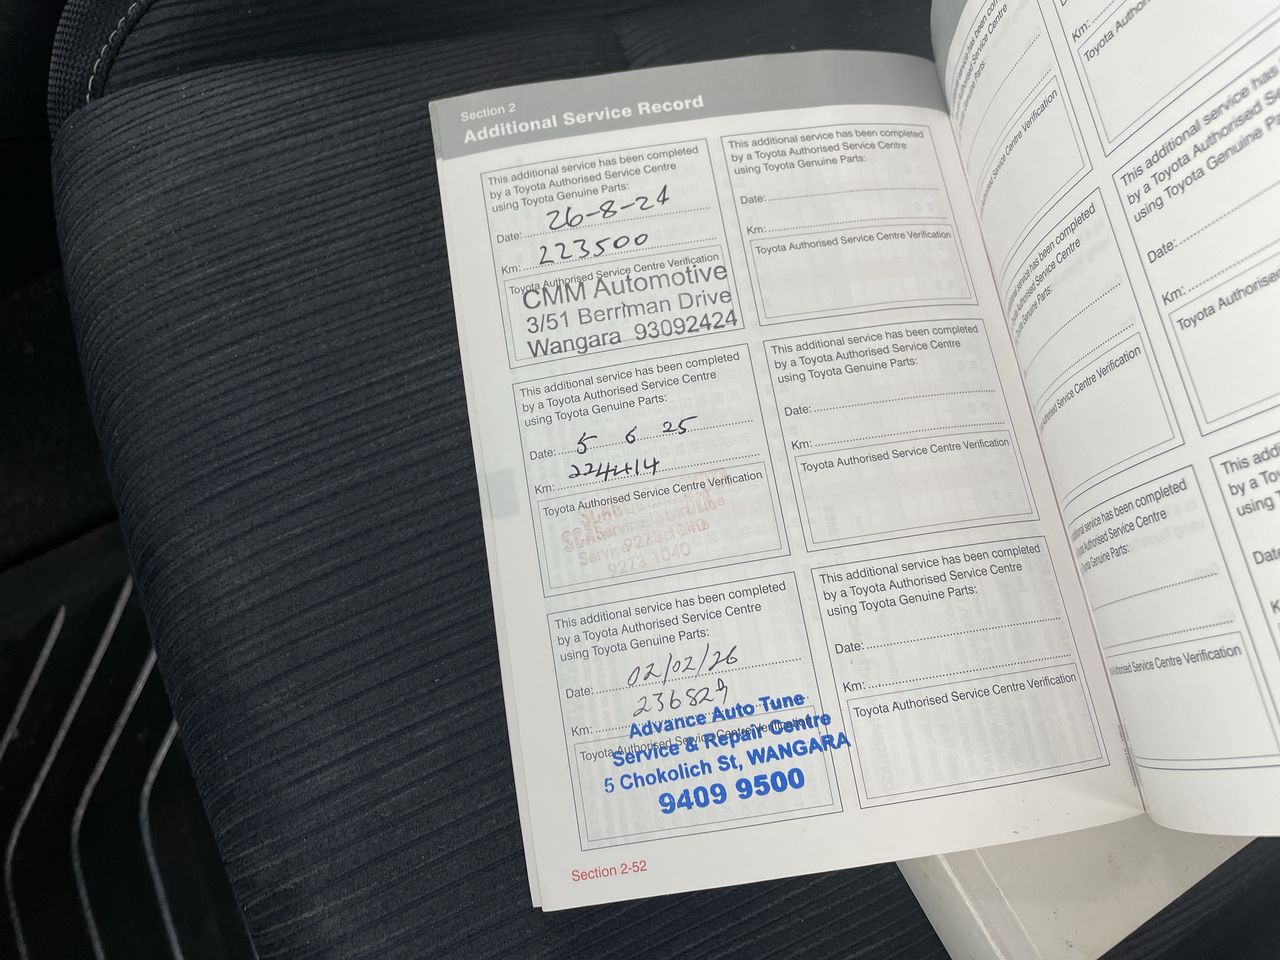 Section 2
Additional Service Record
This additional service has been completed
by a Toyota Authorised Service Centre
using Toyota Genuine Parts:
Date: 26-8-24
Km: 223500
Toyota Authorised Service Centre Verification
CMM Automotive
3/51 Berriman Drive
Wangara 93092424
This additional service has been completed
by a Toyota Authorised Service Centre
using Toyota Genuine Parts:
Date: 5 6 25
Km: 224414
Toyota Authorised Service Centre Verification
9273 1040
This additional service has been completed
by a Toyota Authorised Service Centre
using Toyota Genuine Parts:
Date: 02/02/26
Km: 236829
Toyota Authorised Service Centre Verification
Advance Auto Tune
Service & Repair Centre
5 Chokolich St, WANGARA
9409 9500
Section 2-52
This additional service has been completed
by a Toyota Authorised Service Centre
using Toyota Genuine Parts:
Date:
Km:
Toyota Authorised Service Centre Verification
This additional service has been completed
by a Toyota Authorised Service Centre
using Toyota Genuine Parts:
Date:
Km:
Toyota Authorised Service Centre Verification
This additional service has been completed
by a Toyota Authorised Service Centre
using Toyota Genuine Parts:
Date:
Km:
Toyota Authorised Service Centre Verification
service has been completed
Authorised Service Centre
Genuine Parts:
Authorised Service Centre Verification
service has been completed
Authorised Service Centre
Genuine Parts:
Authorised Service Centre Verification
service has been completed
Authorised Service Centre
Genuine Parts:
Authorised Service Centre Verification
Km:
Toyota Authorised
This additional service has
by a Toyota Authorised
using Toyota Genuine
Date:
Km:
Toyota Authorised
This add
by a To
using